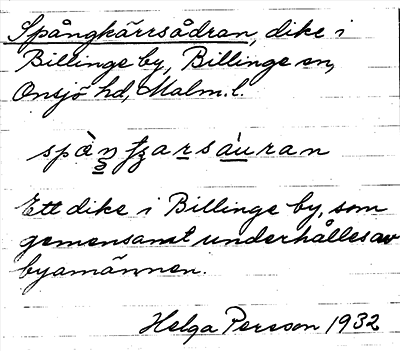 Spångkärrsådran, dike i
Billinge by, Billinge sn,
Onsjö hd, Malm. l.
Ett dike i Billinge by, som
gemensamt underhålles av
byamännen.
Helga Persson 1932